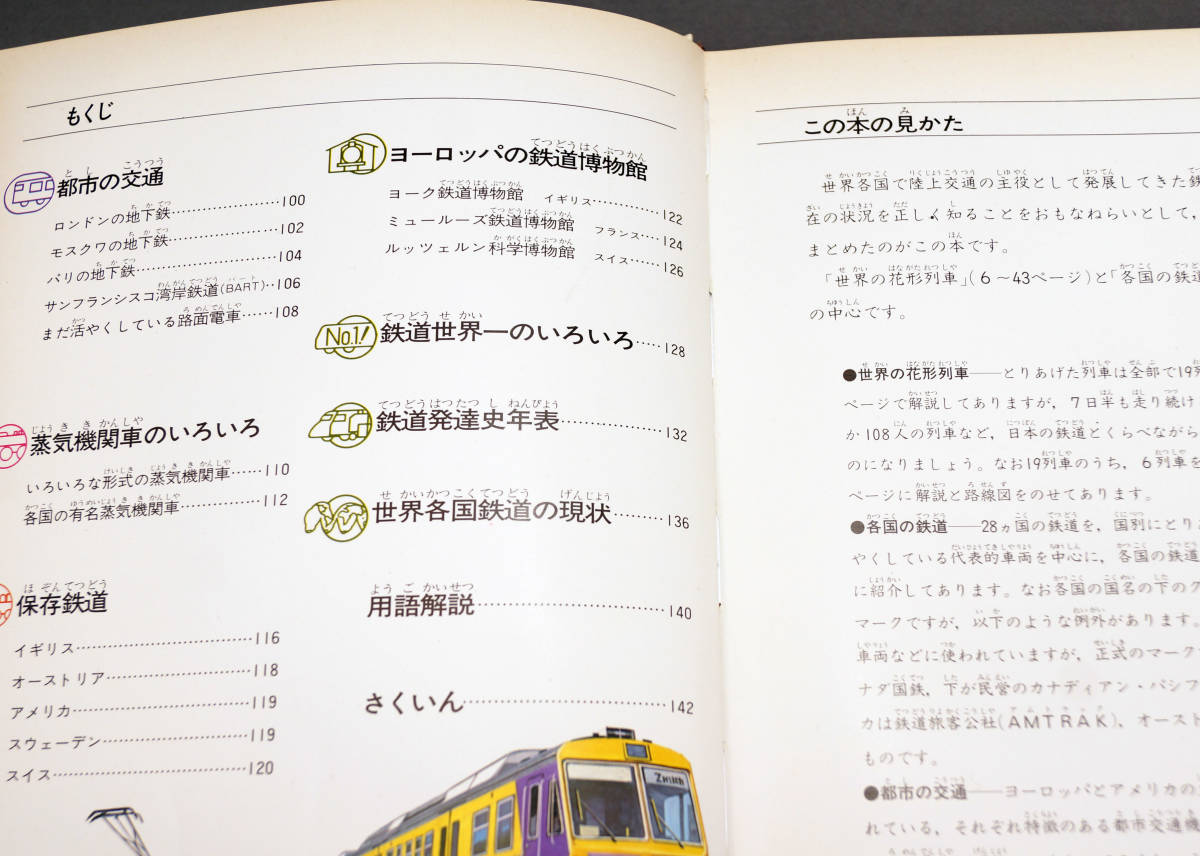 もくじ
都市の交通
ロンドンの地下鉄……100
モスクワの地下鉄……102
パリの地下鉄……104
サンフランシスコ湾岸鉄道(BART)…106
まだ活やくしている路面電車……108
蒸気機関車のいろいろ
いろいろな形式の蒸気機関車……110
各国の有名蒸気機関車……112
保存鉄道
イギリス……116
オーストリア……118
アメリカ……119
スウェーデン……119
スイス……120
ヨーロッパの鉄道博物館
ヨーク鉄道博物館 イギリス……122
ミュールーズ鉄道博物館 フランス……124
ルッツェルン科学博物館 スイス……126
No.1!
鉄道世界一のいろいろ……128
鉄道発達史年表……132
世界各国鉄道の現状……136
用語解説……140
さくいん……142
Zürich
この本の見かた
世界各国で陸上交通の主役として発展してきた鉄
在の状況を正しく知ることをおもなねらいとして,
まとめたのがこの本です。
「世界の花形列車」(6〜43ページ)と「各国の鉄道
の中心です。
●世界の花形列車――とりあげた列車は全部で19列
ページで解説してありますが, 7日半も走り続け
か108人の列車など, 日本の鉄道とくらべながら
のになりましょう。なお19列車のうち, 6列車を
ページに解説と路線図をのせてあります。
●各国の鉄道――28ヵ国の鉄道を, 国別にとり
やくしている代表的車両を中心に, 各国の鉄道
に紹介してあります。なお各国の国名の下の
マークですが, 以下のような例外があります。
車両などに使われていますが, 正式のマーク
ナダ国鉄, 下が民営のカナディアン・パシフ
カは鉄道旅客公社(AMTRAK), オースト
ものです。
●都市の交通――ヨーロッパとアメリカの
れている, それぞれ特徴のある都市交通機